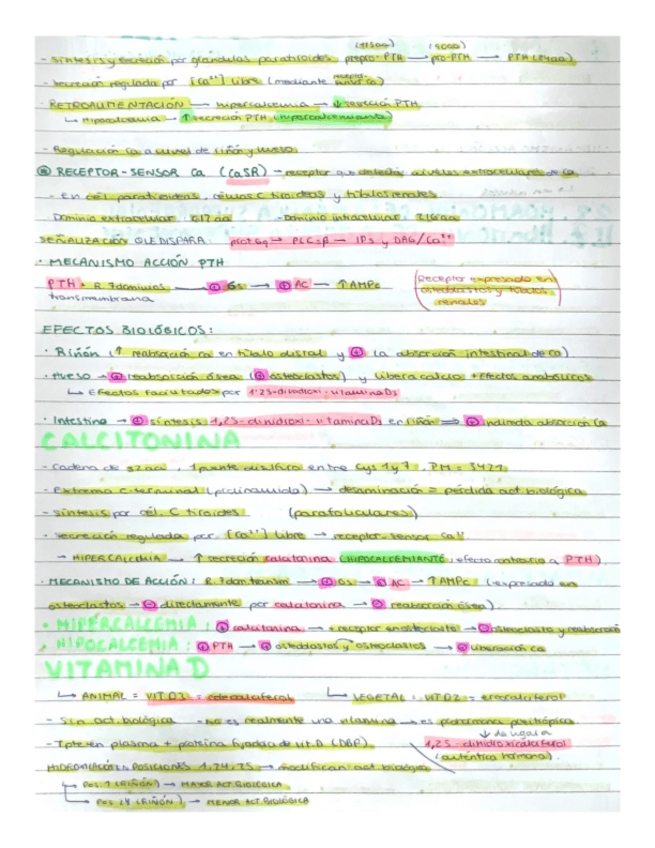 (11500) (9000)
- Síntesis y secreción por glándulas paratiroides. prepro-PTH → pro-PTH → PTH (84aa)
- Secreción regulada por [Ca²⁺] libre (mediante receptor-sensor Ca)
- RETROALIMENTACIÓN → hipercalcemia → ↓ secreción PTH
↳ Hipocalcemia → ↑ secreción PTH (hipercalcemiante)
- Regulación Ca a nivel de riñón y hueso.
RECEPTOR-SENSOR Ca (CaSR) → receptor que detecta niveles extracelulares de Ca
- En cél. paratiroideas, células C tiroideas y túbulos renales
Dominio extracelular 612 aa - Dominio intracelular 216 aa
SEÑALIZACIÓN QUE DISPARA: prot Gq → PLC-β → IP3 y DAG/Ca²⁺
· MECANISMO ACCIÓN PTH
PTH + R. 7 dominios → ⊕ Gs → ⊕ AC → ↑AMPc
transmembrana
(Receptor expresado en
osteoblastos y túbulos
renales)
EFECTOS BIOLÓGICOS:
· Riñón (↑ reabsorció Ca en túbulo distal y ⊕ la absorción intestinal de Ca)
· Hueso → ⊕ reabsorción ósea (⊕ osteoclastos) y libera calcio + Efectos anabólicos
↳ Efectos facilitados por 1,25-dihidroxi-vitamina D3
· Intestino → ⊕ síntesis 1,25-dihidroxi-vitamina D3 en riñón ⇒ ⊕ indirecta absorción Ca
CALCITONINA
- Cadena de 32 aa, 1 puente disulfuro entre Cys 1 y 7, PM = 3421
- Extremo C-terminal (prolinamida) → desaminación = pérdida act. biológica
- Síntesis por cél. C tiroides (parafoliculares)
· Secreción regulada por [Ca²⁺] libre → receptor-sensor Ca²⁺
→ HIPERCALCEMIA → ↑ secreción calcitonina (HIPOCALCEMIANTE: efecto contrario a PTH)
· MECANISMO DE ACCIÓN: R. 7 dom transm → ⊕ Gs → ⊕ AC → ↑AMPc (expresado en
osteoclastos → ⊖ directamente por calcitonina → ⊖ reabsorción ósea).
· HIPERCALCEMIA: ⊕ calcitonina → + receptor en osteoclasto → ⊖ osteoclasto y reabsorción
· HIPOCALCEMIA: ⊕ PTH → ⊕ osteoblastos y osteoclastos → ⊕ liberación Ca
VITAMINA D
↳ ANIMAL = VIT D3 = colecalciferol ↳ VEGETAL = VIT D2 = ergocalciferol
- Sin act. biológica - No es realmente una vitamina → es prohormona pleitrópica.
↓ da lugar a
- Tpte en plasma + proteína fijadora de vit. D (DBP). 1,25-dihidroxicalciferol
(auténtica hormona).
HIDROXILACIÓN EN POSICIONES 1, 24, 25 → modifican act. biológica
↳ Pos. 1 (RIÑÓN) → MAYOR ACT. BIOLÓGICA
↳ Pos. 24 (RIÑÓN) → MENOR ACT. BIOLÓGICA